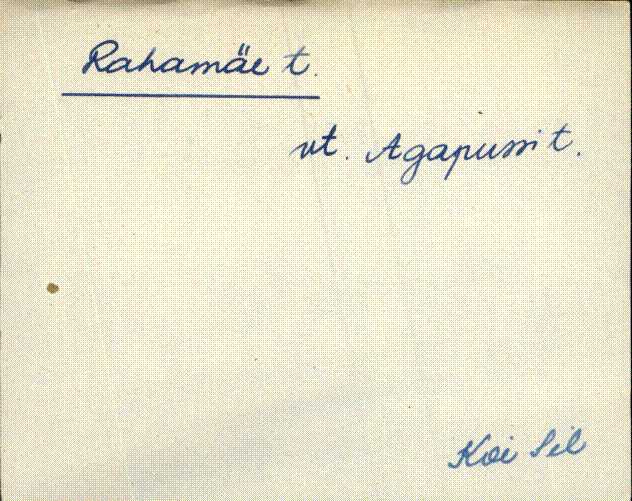 Rahamäe t.
vt. Agapussi t.
Koi Sil